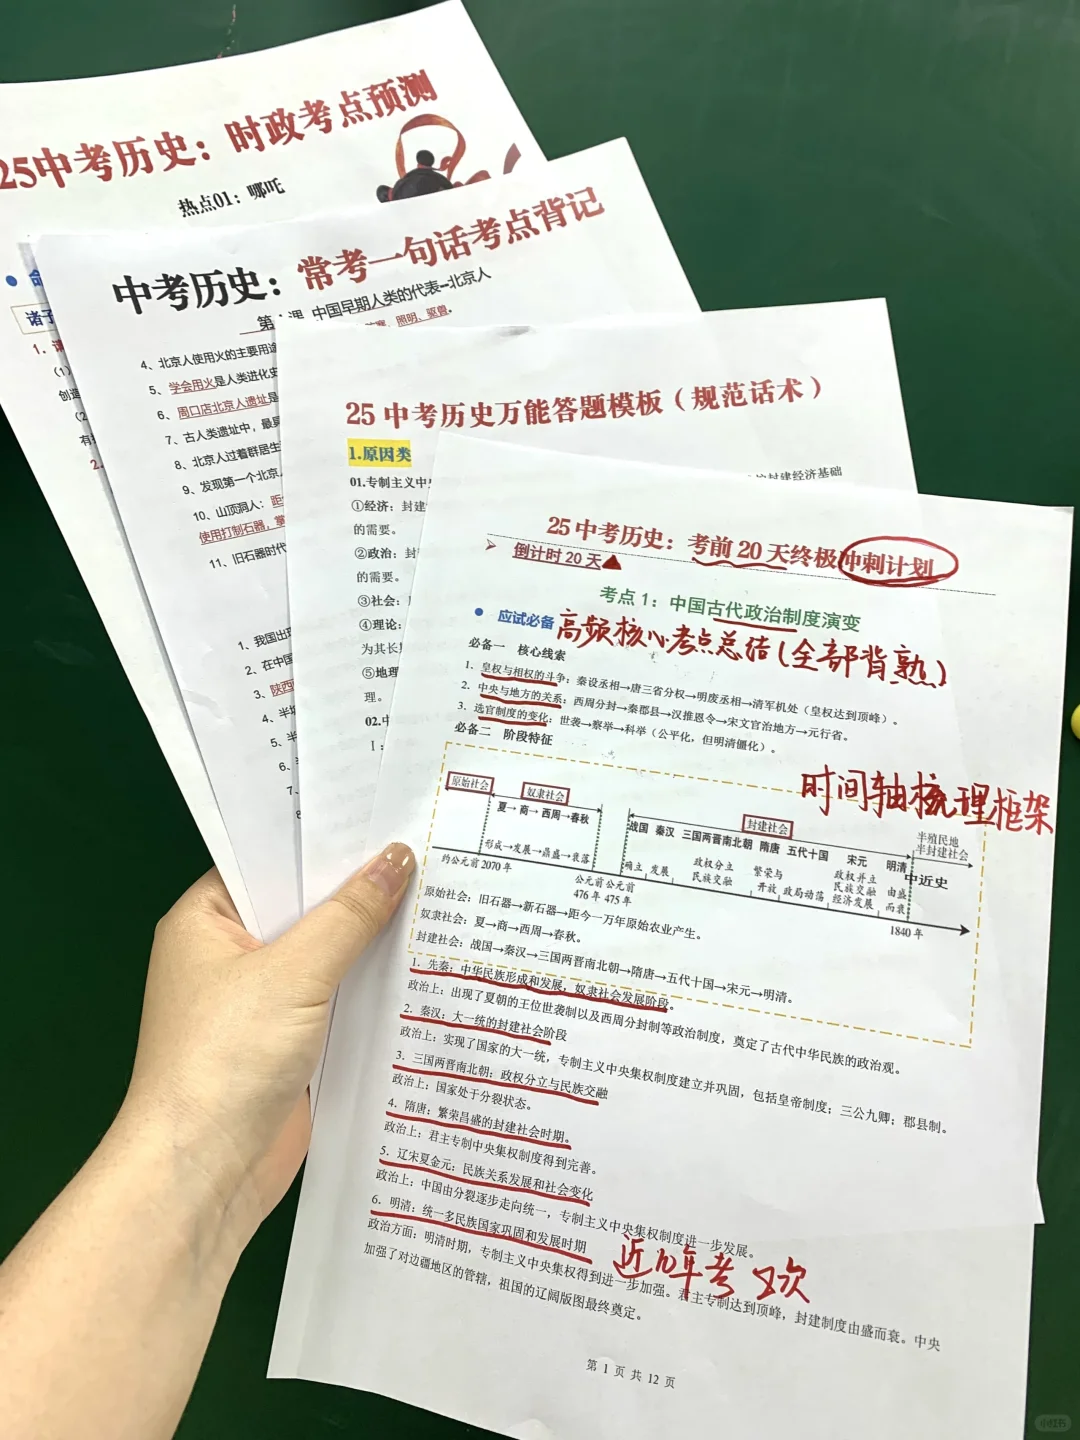 25中考历史：时政考点预测
热点01：哪吒
诸子
（1）
创造
（2
有
2.
中考历史：常考一句话考点背记
中国早期人类的代表--北京人
照明、驱兽。
4、北京人使用火的主要用途
5、学会用火是人类进化史
6、周口店北京人遗址是
7、古人类遗址中，最
8、北京人过着群居生
9、发现第一个北京
10、山顶洞人：
使用打制石器，
11、旧石器时代
1、我国出
2、在中国
3、陕西
4、半
5、半
6、
7、
25 中考历史万能答题模板（规范话术）
1.原因类
封建经济基础
01.专制主义中
①经济：封建
的需要。
②政治：封
的需要。
③社会：
④理论：
为其长
⑤地理
理。
02.中
25 中考历史：考前 20 天终极冲刺计划
➢ 倒计时 20 天
考点 1：中国古代政治制度演变
● 应试必备 高频核心考点总结(全部背熟)
必备一 核心线索
1. 皇权与相权的斗争：秦设丞相→唐三省分权→明废丞相→清军机处（皇权达到顶峰）。
2. 中央与地方的关系：西周分封→秦郡县→汉推恩令→宋文官治地方→元行省。
3. 选官制度的变化：世袭→察举→科举（公平化，但明清僵化）。
必备二 阶段特征
时间轴梳理框架
原始社会 奴隶社会 封建社会 半殖民地
半封建社会
夏→商→西周→春秋 战国 秦汉 三国两晋南北朝 隋唐 五代十国 宋元 明清 中近史
形成→发展→鼎盛→衰落 确立 发展 政权分立 民族交融 繁荣与开放 政局动荡 政权并立 民族交融 经济发展 由盛而衰
约公元前 2070 年 公元前 476 年 公元前 475 年 1840 年
原始社会：旧石器→新石器→距今一万年原始农业产生。
奴隶社会：夏→商→西周→春秋。
封建社会：战国→秦汉→三国两晋南北朝→隋唐→五代十国→宋元→明清。
1. 先秦：中华民族形成和发展，奴隶社会发展阶段。
政治上：出现了夏朝的王位世袭制以及西周分封制等政治制度，奠定了古代中华民族的政治观。
2. 秦汉：大一统的封建社会阶段
政治上：实现了国家的大一统，专制主义中央集权制度建立并巩固，包括皇帝制度；三公九卿；郡县制。
3. 三国两晋南北朝：政权分立与民族交融
政治上：国家处于分裂状态。
4. 隋唐：繁荣昌盛的封建社会时期。
政治上：君主专制中央集权制度得到完善。
5. 辽宋夏金元：民族关系发展和社会变化
政治上：中国由分裂逐步走向统一，专制主义中央集权制度进一步发展。
6. 明清：统一多民族国家巩固和发展时期
近10年考 次
政治方面：明清时期，专制主义中央集权得到进一步加强。君主专制达到顶峰，封建制度由盛而衰。中央
加强了对边疆地区的管辖，祖国的辽阔版图最终奠定。
第 1 页 共 12 页
小红书